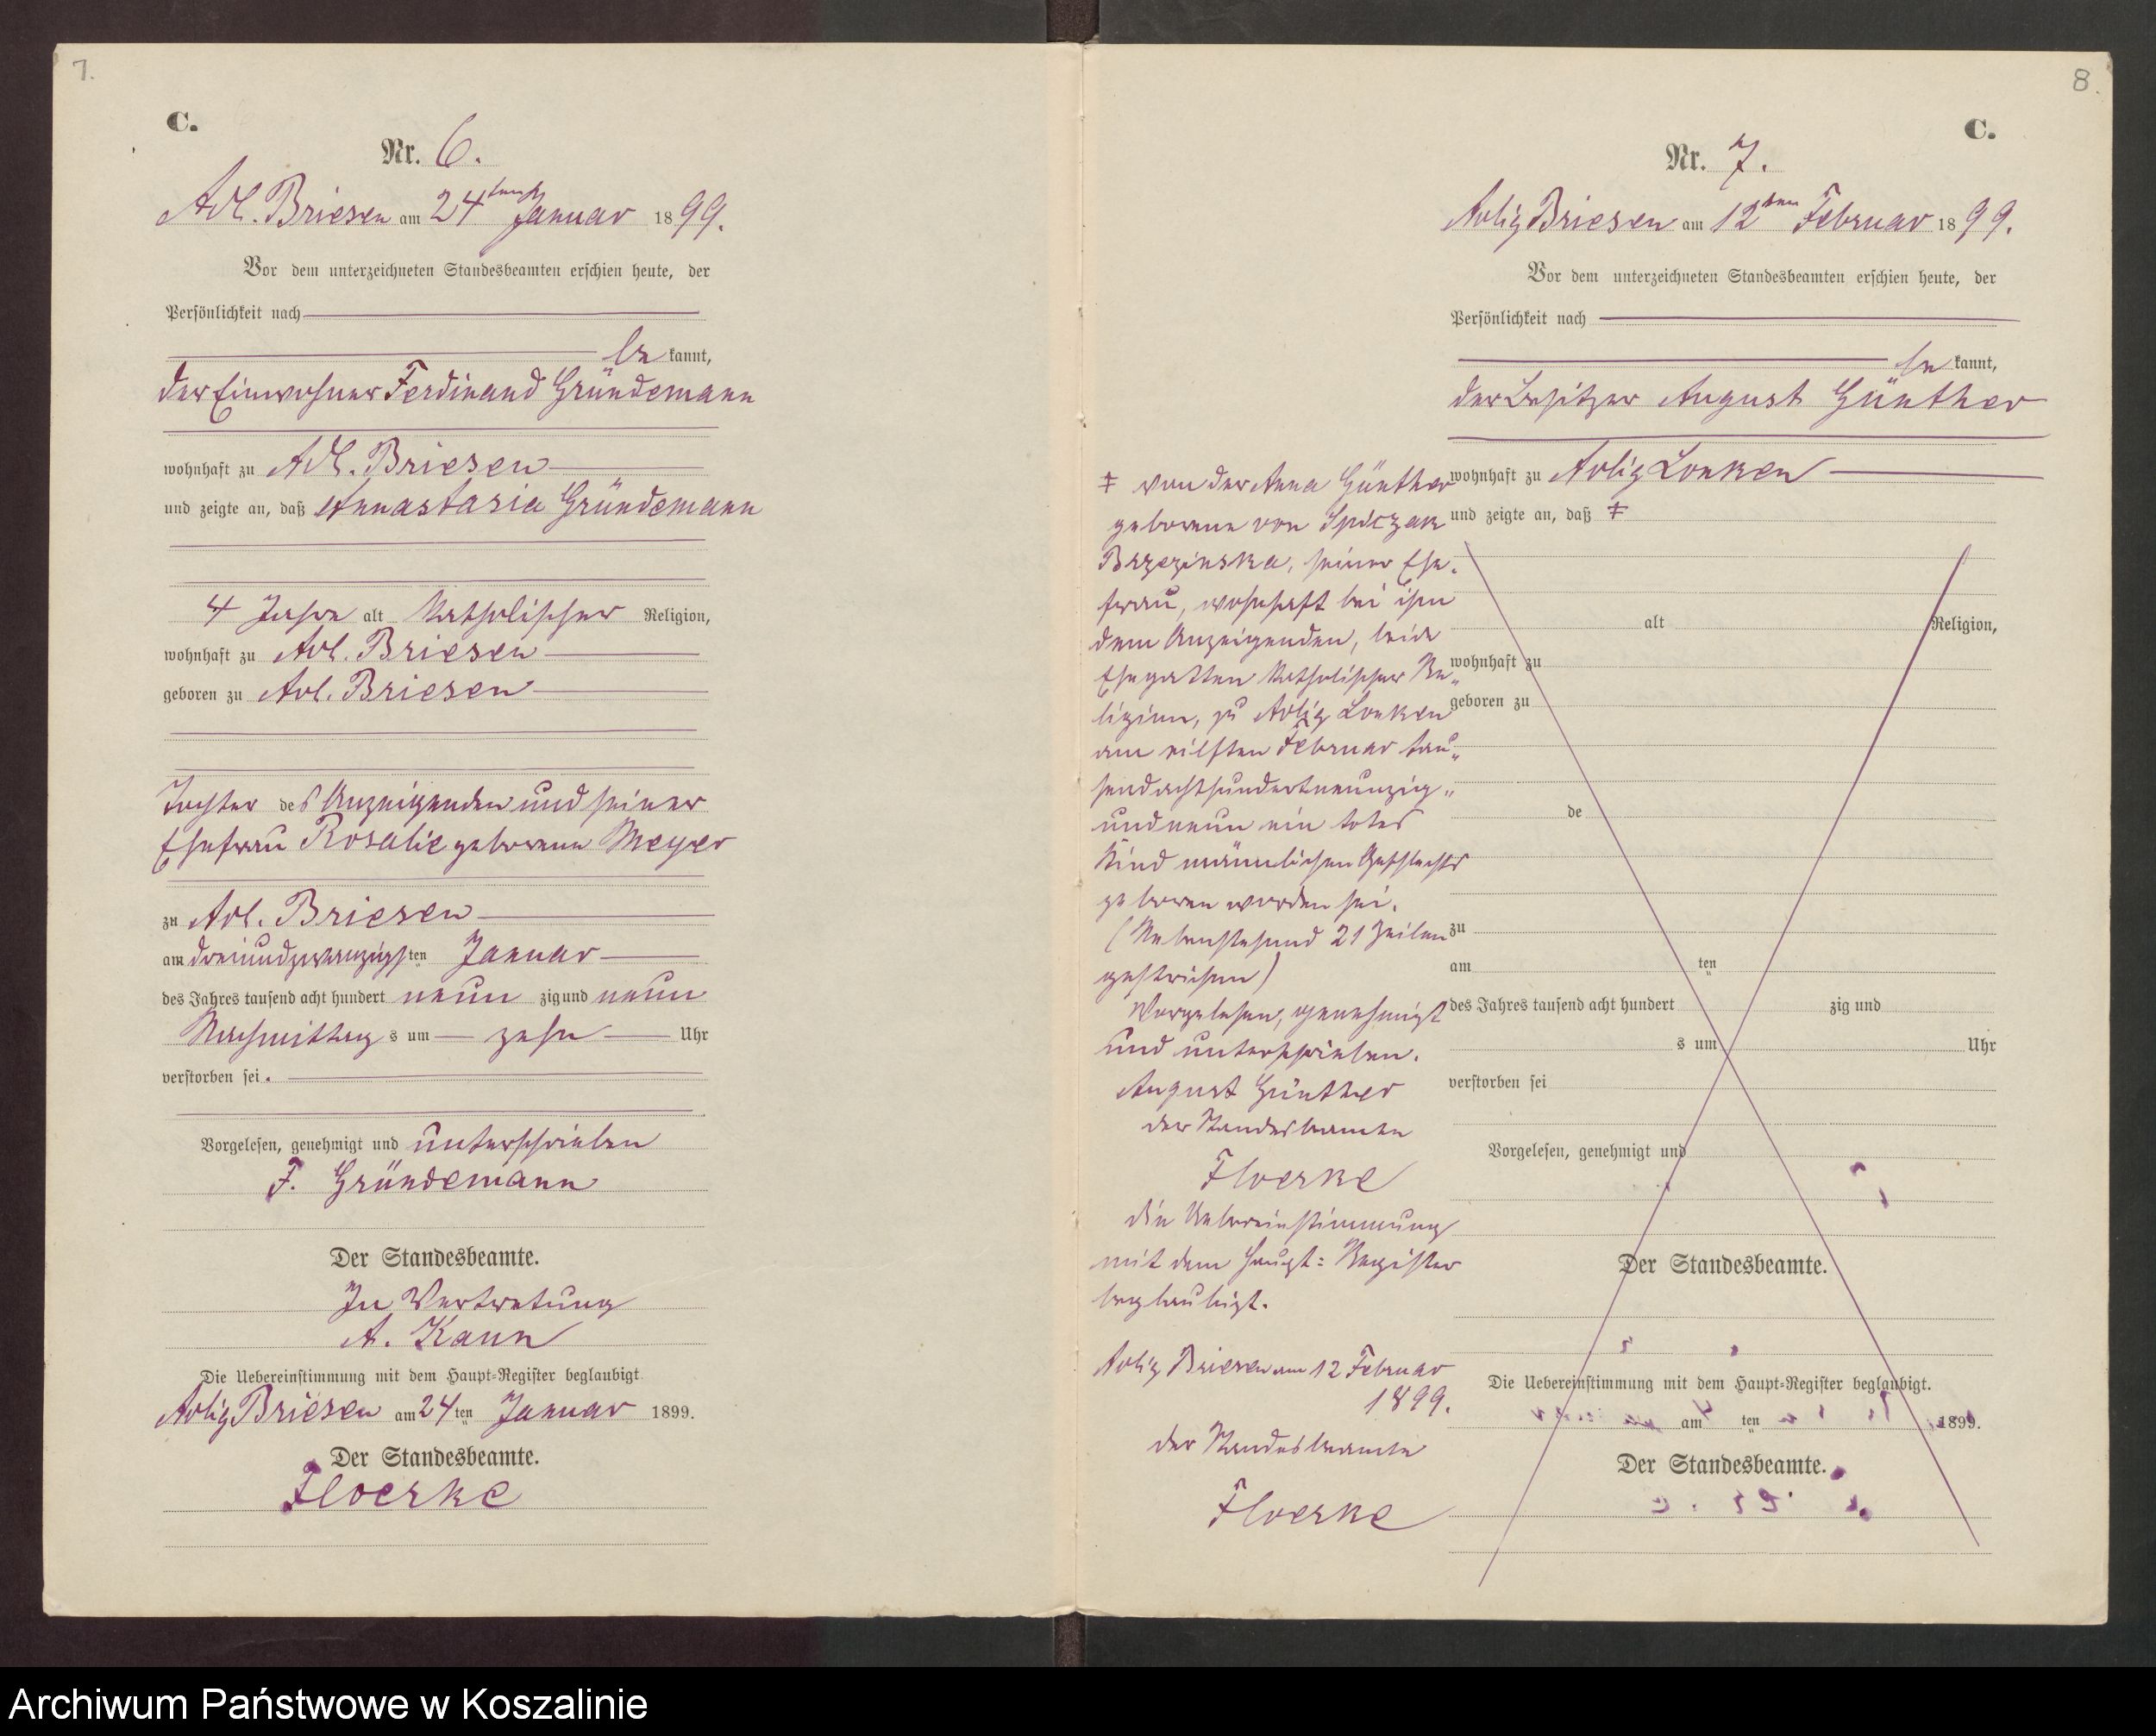 7.
C.
Nr. 6.
Adl. Briesen am 24ten Januar 1899.
Vor dem unterzeichneten Standesbeamten erschien heute, der
Persönlichkeit nach
be kannt,
der Einwohner Ferdinand Gründemann
wohnhaft zu Adl. Briesen
und zeigte an, daß Annastasia Gründemann
4 Jahre alt katholischer Religion,
wohnhaft zu Adl. Briesen
geboren zu Adl. Briesen
Tochter des Anzeigenden und seiner
Ehefrau Rosalie geborene Meyer
zu Adl. Briesen
am dreiundzwanzigsten Januar
des Jahres tausend acht hundert neun zig und neun
Nachmittag s um zehn Uhr
verstorben sei.
Vorgelesen, genehmigt und unterschrieben
F. Gründemann
Der Standesbeamte.
In Vertretung
A. Kann
Die Uebereinstimmung mit dem Haupt-Register beglaubigt
Adlig Briesen am 24ten Januar 1899.
Der Standesbeamte.
Floerke
8.
C.
Nr. 7.
Adlig Briesen am 12ten Februar 1899.
Vor dem unterzeichneten Standesbeamten erschien heute, der
Persönlichkeit nach
be kannt,
der Besitzer August Günther
wohnhaft zu Adlig Lonken
und zeigte an, daß ‡
‡ von der Anna Günther
geborene von Spiczak
Brzezinska, seiner Ehe-
frau, wohnhaft bei ihm
dem Anzeigenden, beide
Ehegatten katholischer Re-
ligion, zu Adlig Lonken
am eilften Februar tau-
sendachthundertneunzig-
undneun ein totes
Kind männlichen Geschlechts
geboren worden sei.
(Nebenstehend 21 Zeilen
gestrichen)
Vorgelesen, genehmigt
und unterschrieben.
August Günther
der Standesbeamte
Floerke
die Uebereinstimmung
mit dem Haupt-Register
beglaubigt.
Adlig Briesen am 12 Februar
1899.
der Standesbeamte
Floerke
alt Religion,
wohnhaft zu
geboren zu
de
zu
am ten
des Jahres tausend acht hundert zig und
s um Uhr
verstorben sei
Vorgelesen, genehmigt und
Der Standesbeamte.
Die Uebereinstimmung mit dem Haupt-Register beglaubigt.
am ten 1899.
Der Standesbeamte.
Archiwum Państwowe w Koszalinie